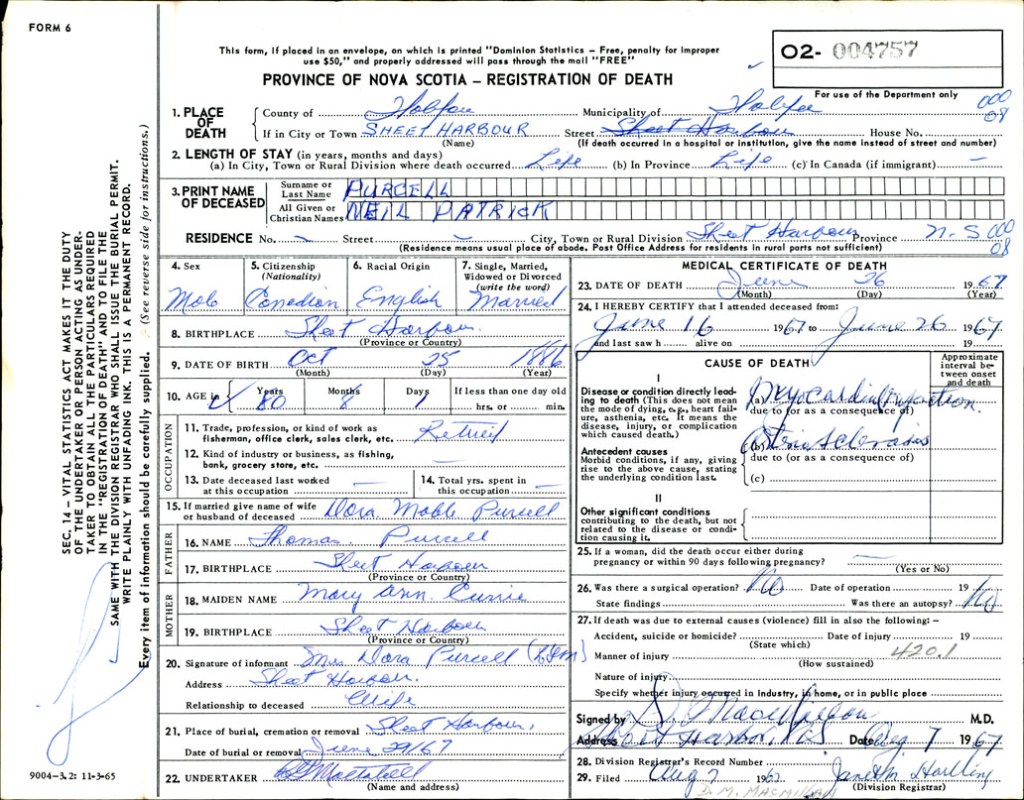 FORM 6
This form, if placed in an envelope, on which is printed "Dominion Statistics – Free, penalty for improper
use $50," and properly addressed will pass through the mail "FREE"
PROVINCE OF NOVA SCOTIA – REGISTRATION OF DEATH
O2- 004757
For use of the Department only
1. PLACE OF DEATH
County of Halifax Municipality of Halifax 000
If in City or Town SHEET HARBOUR Street Sheet Harbour House No. 08
(Name) (If death occurred in a hospital or institution, give the name instead of street and number)
2. LENGTH OF STAY (in years, months and days)
(a) In City, Town or Rural Division where death occurred Life (b) In Province Life (c) In Canada (if immigrant) —
3. PRINT NAME OF DECEASED
Surname or Last Name PURCELL
All Given or Christian Names NEIL PATRICK
RESIDENCE No. – Street – City, Town or Rural Division Sheet Harbour Province N.S 000
(Residence means usual place of abode. Post Office Address for residents in rural parts not sufficient) 08
4. Sex
Male
5. Citizenship
(Nationality)
Canadian
6. Racial Origin
English
7. Single, Married,
Widowed or Divorced
(write the word)
Married
8. BIRTHPLACE Sheet Harbour
(Province or Country)
9. DATE OF BIRTH Oct 25 1886
(Month) (Day) (Year)
10. AGE Years Months Days If less than one day old
80 8 1 hrs. or min.
OCCUPATION
11. Trade, profession, or kind of work as
fisherman, office clerk, sales clerk, etc. Retired
12. Kind of industry or business, as fishing,
bank, grocery store, etc. —
13. Date deceased last worked
at this occupation —
14. Total yrs. spent in
this occupation —
15. If married give name of wife
or husband of deceased Dora Mable Purcell
FATHER
16. NAME Thomas Purcell
17. BIRTHPLACE Sheet Harbour
(Province or Country)
MOTHER
18. MAIDEN NAME Mary Ann Currie
19. BIRTHPLACE Sheet Harbour
(Province or Country)
20. Signature of informant Mrs Dora Purcell
Address Sheet Harbour.
Relationship to deceased Wife
21. Place of burial, cremation or removal Sheet Harbour.
Date of burial or removal June 29/67
22. UNDERTAKER
(Name and address)
MEDICAL CERTIFICATE OF DEATH
23. DATE OF DEATH June 26 1967
(Month) (Day) (Year)
24. I HEREBY CERTIFY that I attended deceased from:
June 16 1967 to June 26 1967
and last saw h alive on 19
CAUSE OF DEATH
Approximate
interval be-
tween onset
and death
I
Disease or condition directly lead-
ing to death (This does not mean
the mode of dying, e.g., heart fail-
ure, asthenia, etc. It means the
disease, injury, or complication
which caused death.)
(a) Myocardial Infarction.
due to (or as a consequence of)
Antecedent causes
Morbid conditions, if any, giving
rise to the above cause, stating
the underlying condition last.
(b) Arteriosclerosis
due to (or as a consequence of)
(c)
II
Other significant conditions
contributing to the death, but not
related to the disease or condi-
tion causing it.
25. If a woman, did the death occur either during
pregnancy or within 90 days following pregnancy? —
(Yes or No)
26. Was there a surgical operation? No Date of operation 19
State findings Was there an autopsy? No
27. If death was due to external causes (violence) fill in also the following: –
Accident, suicide or homicide? Date of injury 19
(State which) 420.1
Manner of injury
(How sustained)
Nature of injury
Specify whether injury occurred in Industry, in home, or in public place
Signed by M.D.
Address Sheet Harbor, N.S Date Aug 7 1967
28. Division Registrar's Record Number
29. Filed Aug 7 1967
(Division Registrar)
D.M. MACMILLAN
SEC. 14 – VITAL STATISTICS ACT MAKES IT THE DUTY
OF THE UNDERTAKER OR PERSON ACTING AS UNDER-
TAKER TO OBTAIN ALL THE PARTICULARS REQUIRED
IN THE "REGISTRATION OF DEATH" AND TO FILE THE
SAME WITH THE DIVISION REGISTRAR WHO SHALL ISSUE THE BURIAL PERMIT.
WRITE PLAINLY WITH UNFADING INK. THIS IS A PERMANENT RECORD.
Every item of information should be carefully supplied. (See reverse side for instructions.)
9004–3.2: 11-3-65